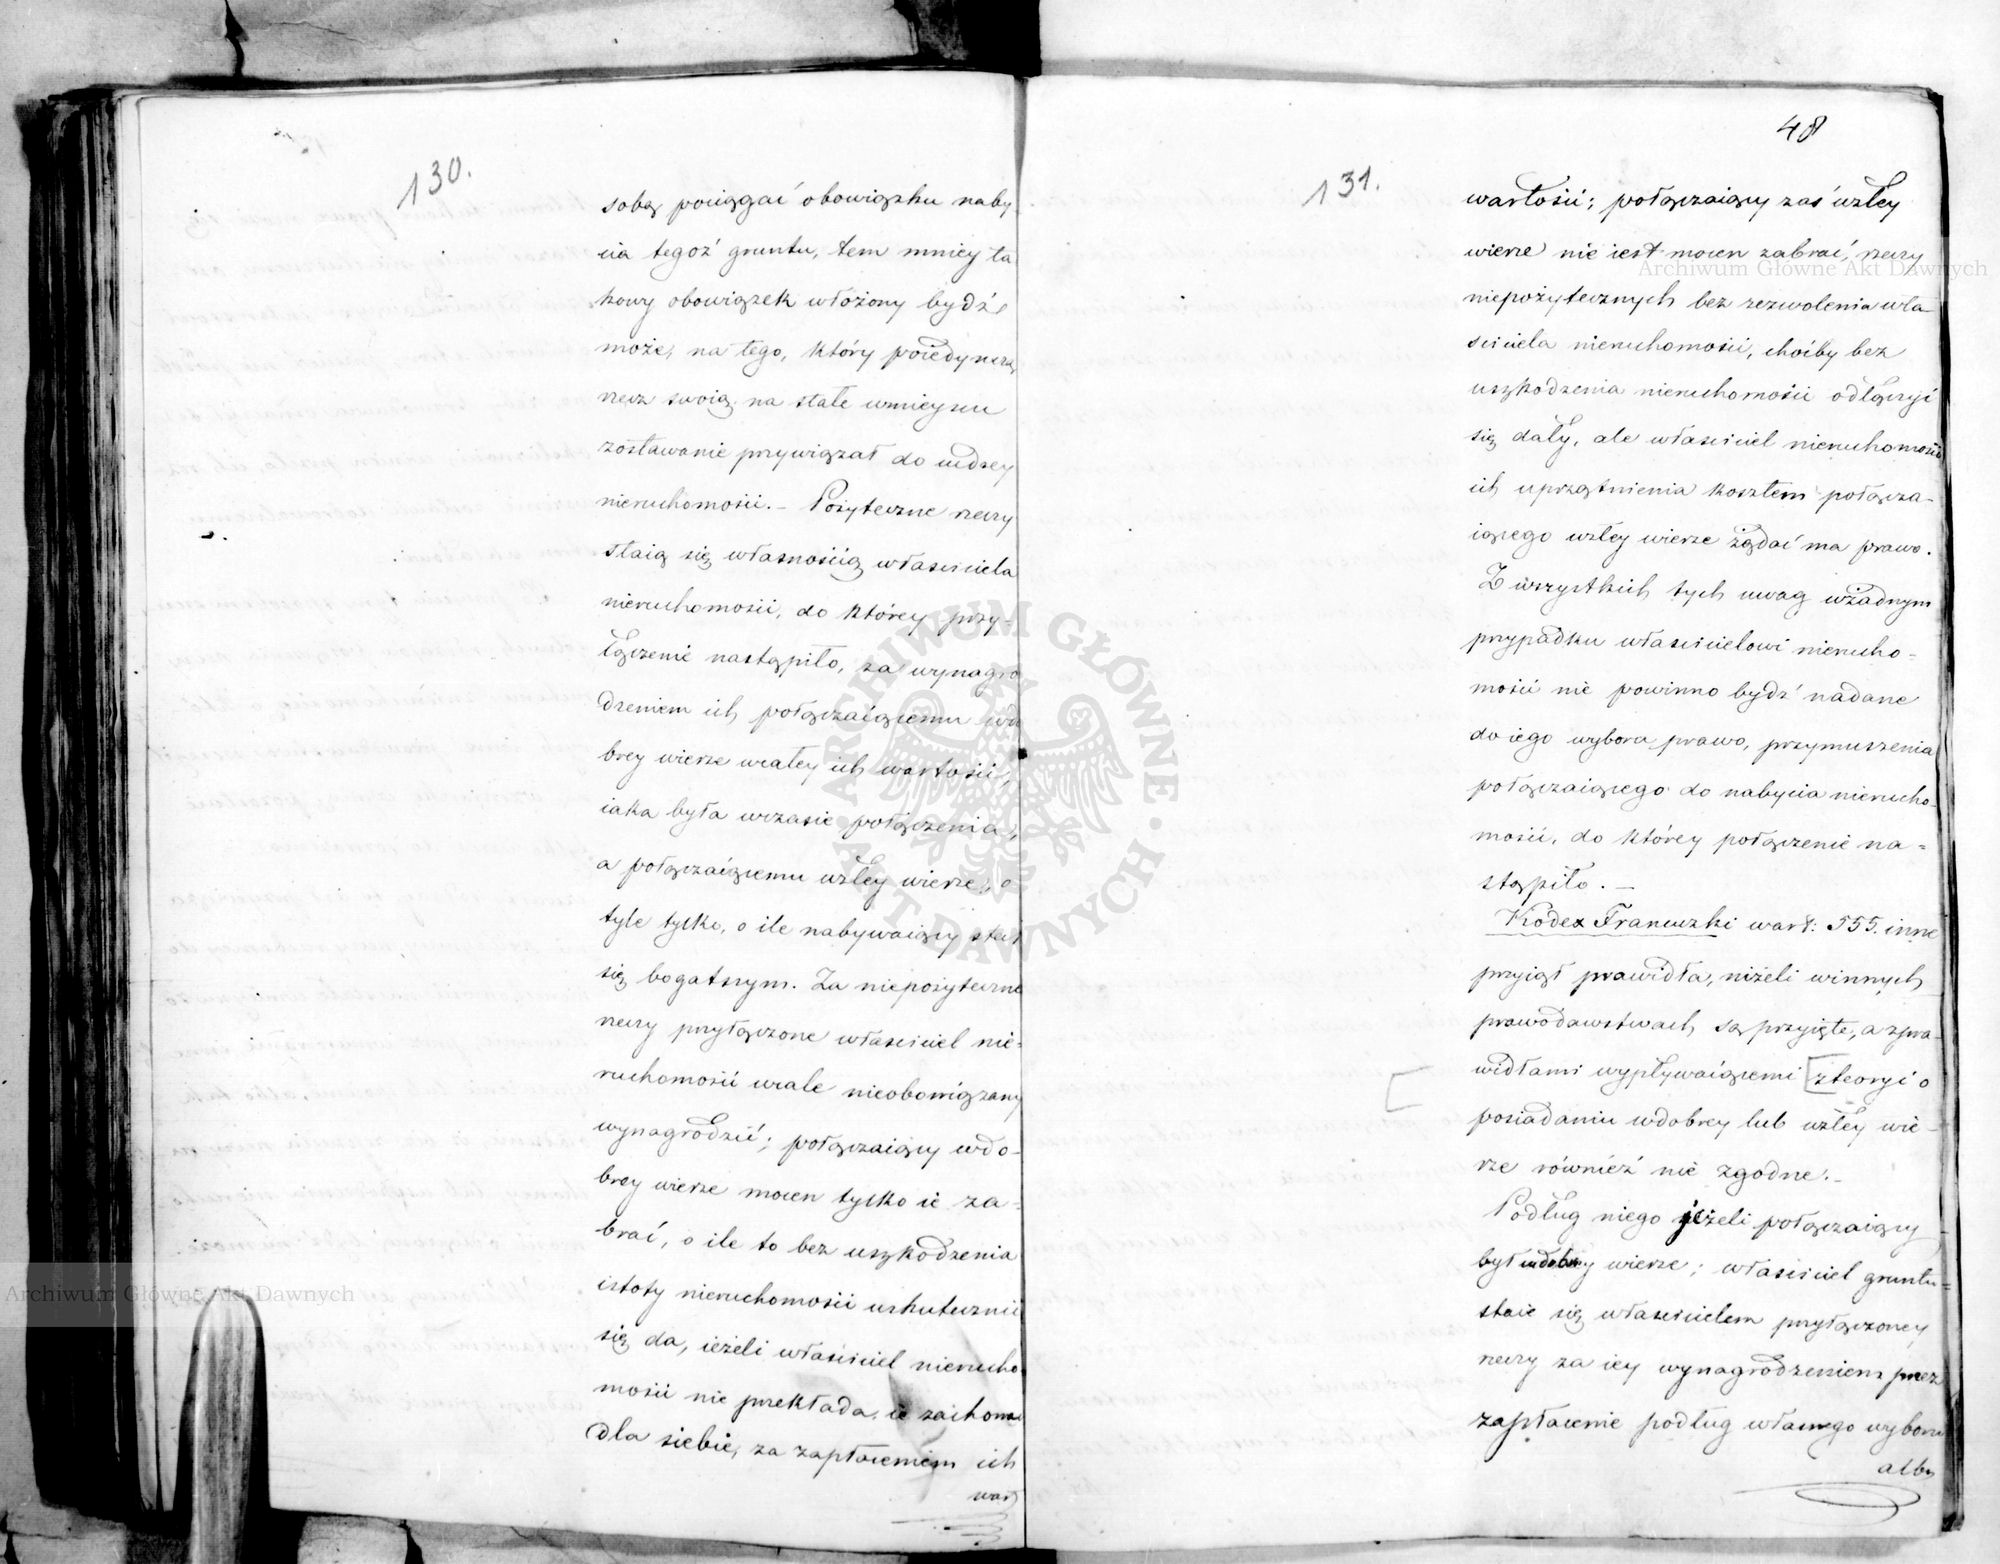 130.
sobą pociągać obowiązku naby
cia tegoż gruntu, tem mniey ta
kowy obowiązek włożony bydź
może, na tego, który poiedynczą
rzecz swoią na stałe wmieyscu
zostawanie przywiązał do cudzey
nieruchomości. – Pożyteczne rzeczy
staią się własnością właściciela
nieruchomości, do którey przy-
łączenie nastąpiło, za wynagro
dzeniem ich połączaiącemu wdo
brey wierze wcałey ich wartości,
iaka była wczasie połączenia,
a połączaiącemu wzłey wierze, o
tyle tylko, o ile nabywaiący stał
się bogatszym. Za niepożyteczne
rzeczy przyłączone właściciel nie=
ruchomości wcale nieobowiązany
wynagrodzić; połączaiący wdo-
brey wierze mocen tylko ie za-
brać, o ile to bez uszkodzenia
istoty nieruchomości uskutecznić
się da, ieżeli właściciel nierucho
mości nie przekłada, ie zachować
dla siebie, za zapłaceniem ich
war
48
131.
wartości; połączaiący zaś wzłey
wierze nie iest mocen zabrać, rzeczy
niepożytecznych bez zezwolenia wła-
ściciela nieruchomości, choćby bez
uszkodzenia nieruchomości odłączyć
się dały, ale właściciel nieruchomości
ich uprzątnienia kosztem połącza-
iącego wzłey wierze żądać ma prawo.
Z wszystkich tych uwag wżadnym
przypadku właścicielowi nierucho=
mości nie powinno bydź nadane
do iego wyboru prawo, przymuszenia
połączaiącego do nabycia nierucho-
mości, do którey połączenie na=
stąpiło. –
Kodex Francuzki wart: 555. inne
przyiął prawidła, niżeli winnych
prawodawstwach są przyięte, a zpra-
widłami wypływaiącemi [zteoryi o
posiadaniu wdobrey lub wzłey wie-
rze również nie zgodne. –
Podług niego jeżeli połączaiący
był wdobrey wierze; właściciel gruntu
staie się właścicielem przyłączoney
rzeczy za iey wynagrodzeniem przez
zapłacenie podług własnego wyboru
albo
Archiwum Główne Akt Dawnych
Archiwum Główne Akt Dawnych
ARCHIWUM GŁÓWNE AKT DAWNYCH